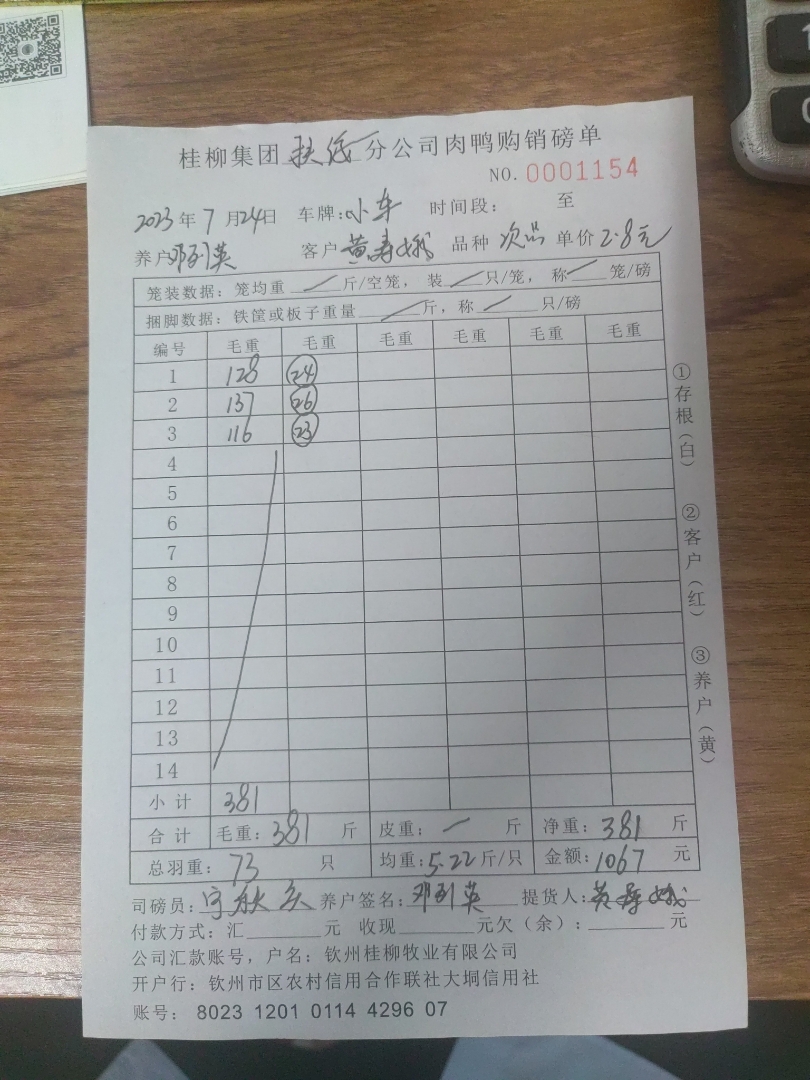 桂柳集团 扶绥 分公司肉鸭购销磅单
NO. 0001154
2023年 7 月24日 车牌:小车 时间段: 至
养户邓列英 客户 黄寿娥 品种 次品 单价 2.8元
笼装数据: 笼均重 / 斤/空笼, 装 / 只/笼, 称 / 笼/磅
捆脚数据: 铁筐或板子重量 / 斤, 称 / 只/磅
编号 毛重 毛重 毛重 毛重 毛重 毛重
1 128 24
2 137 26
3 116 23
4
5
6
7
8
9
10
11
12
13
14
小计 381
合计 毛重: 381 斤 皮重: 一 斤 净重: 381 斤
总羽重: 73 只 均重: 5.22 斤/只 金额: 1067 元
司磅员: 养户签名: 邓列英 提货人: 黄寿娥
付款方式: 汇 元 收现 元欠(余): 元
公司汇款账号, 户名: 钦州桂柳牧业有限公司
开户行: 钦州市区农村信用合作联社大垌信用社
账号: 8023 1201 0114 4296 07
①存根(白)
②客户(红)
③养户(黄)